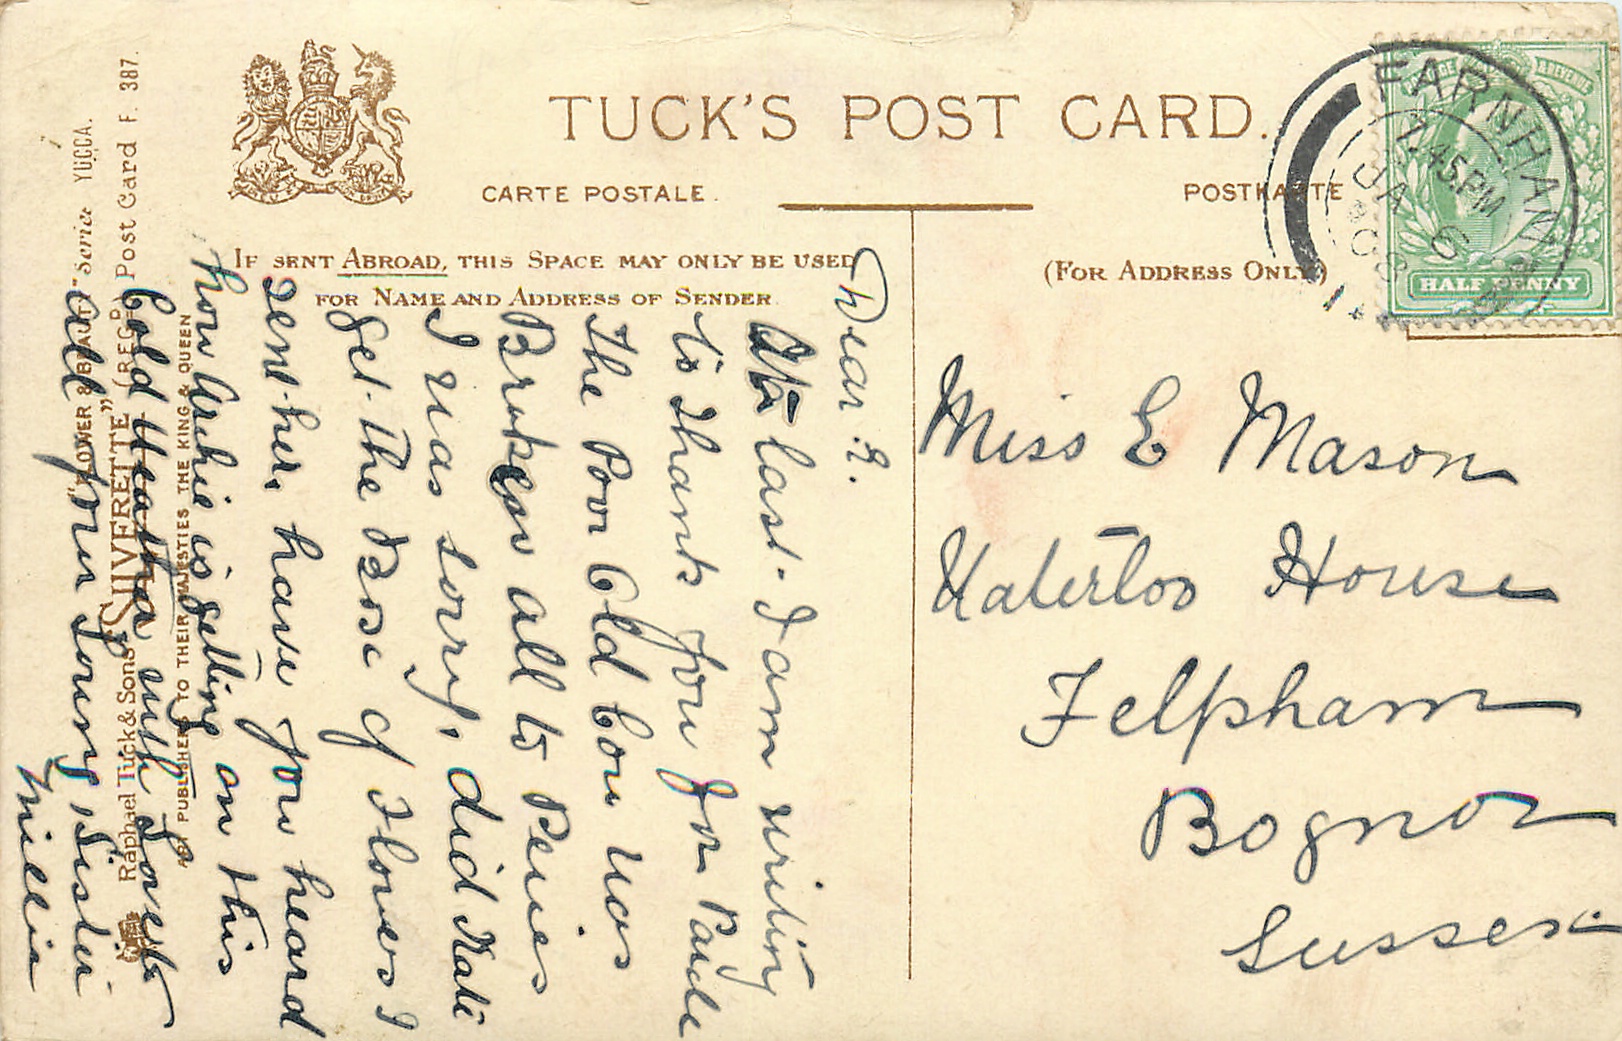 TUCK'S POST CARD.
CARTE POSTALE.
POSTKARTE
IF SENT ABROAD, THIS SPACE MAY ONLY BE USED
FOR NAME AND ADDRESS OF SENDER
(FOR ADDRESS ONLY)
FARNHAM
7.45.PM
JA 6
08
HALF PENNY
Dear E.
At last I am writing
to Thank you for Parcle
The Poor Old Cow was
Broken all to Peices
I was sorry, did Kate
get the Box of Flowers I
sent her, have you heard
how Archie is getting on this
Cold Weather with Love to
all your Loving Sister
Millie
Miss E Mason
Waterloo House
Felpham
Bognor
Sussex
"FLOWER & BEAUTY" Serie YUCCA.
Raphael Tuck & Sons "SILVERETTE" (REGD) Post Card F. 387.
ART PUBLISHERS TO THEIR MAJESTIES THE KING & QUEEN